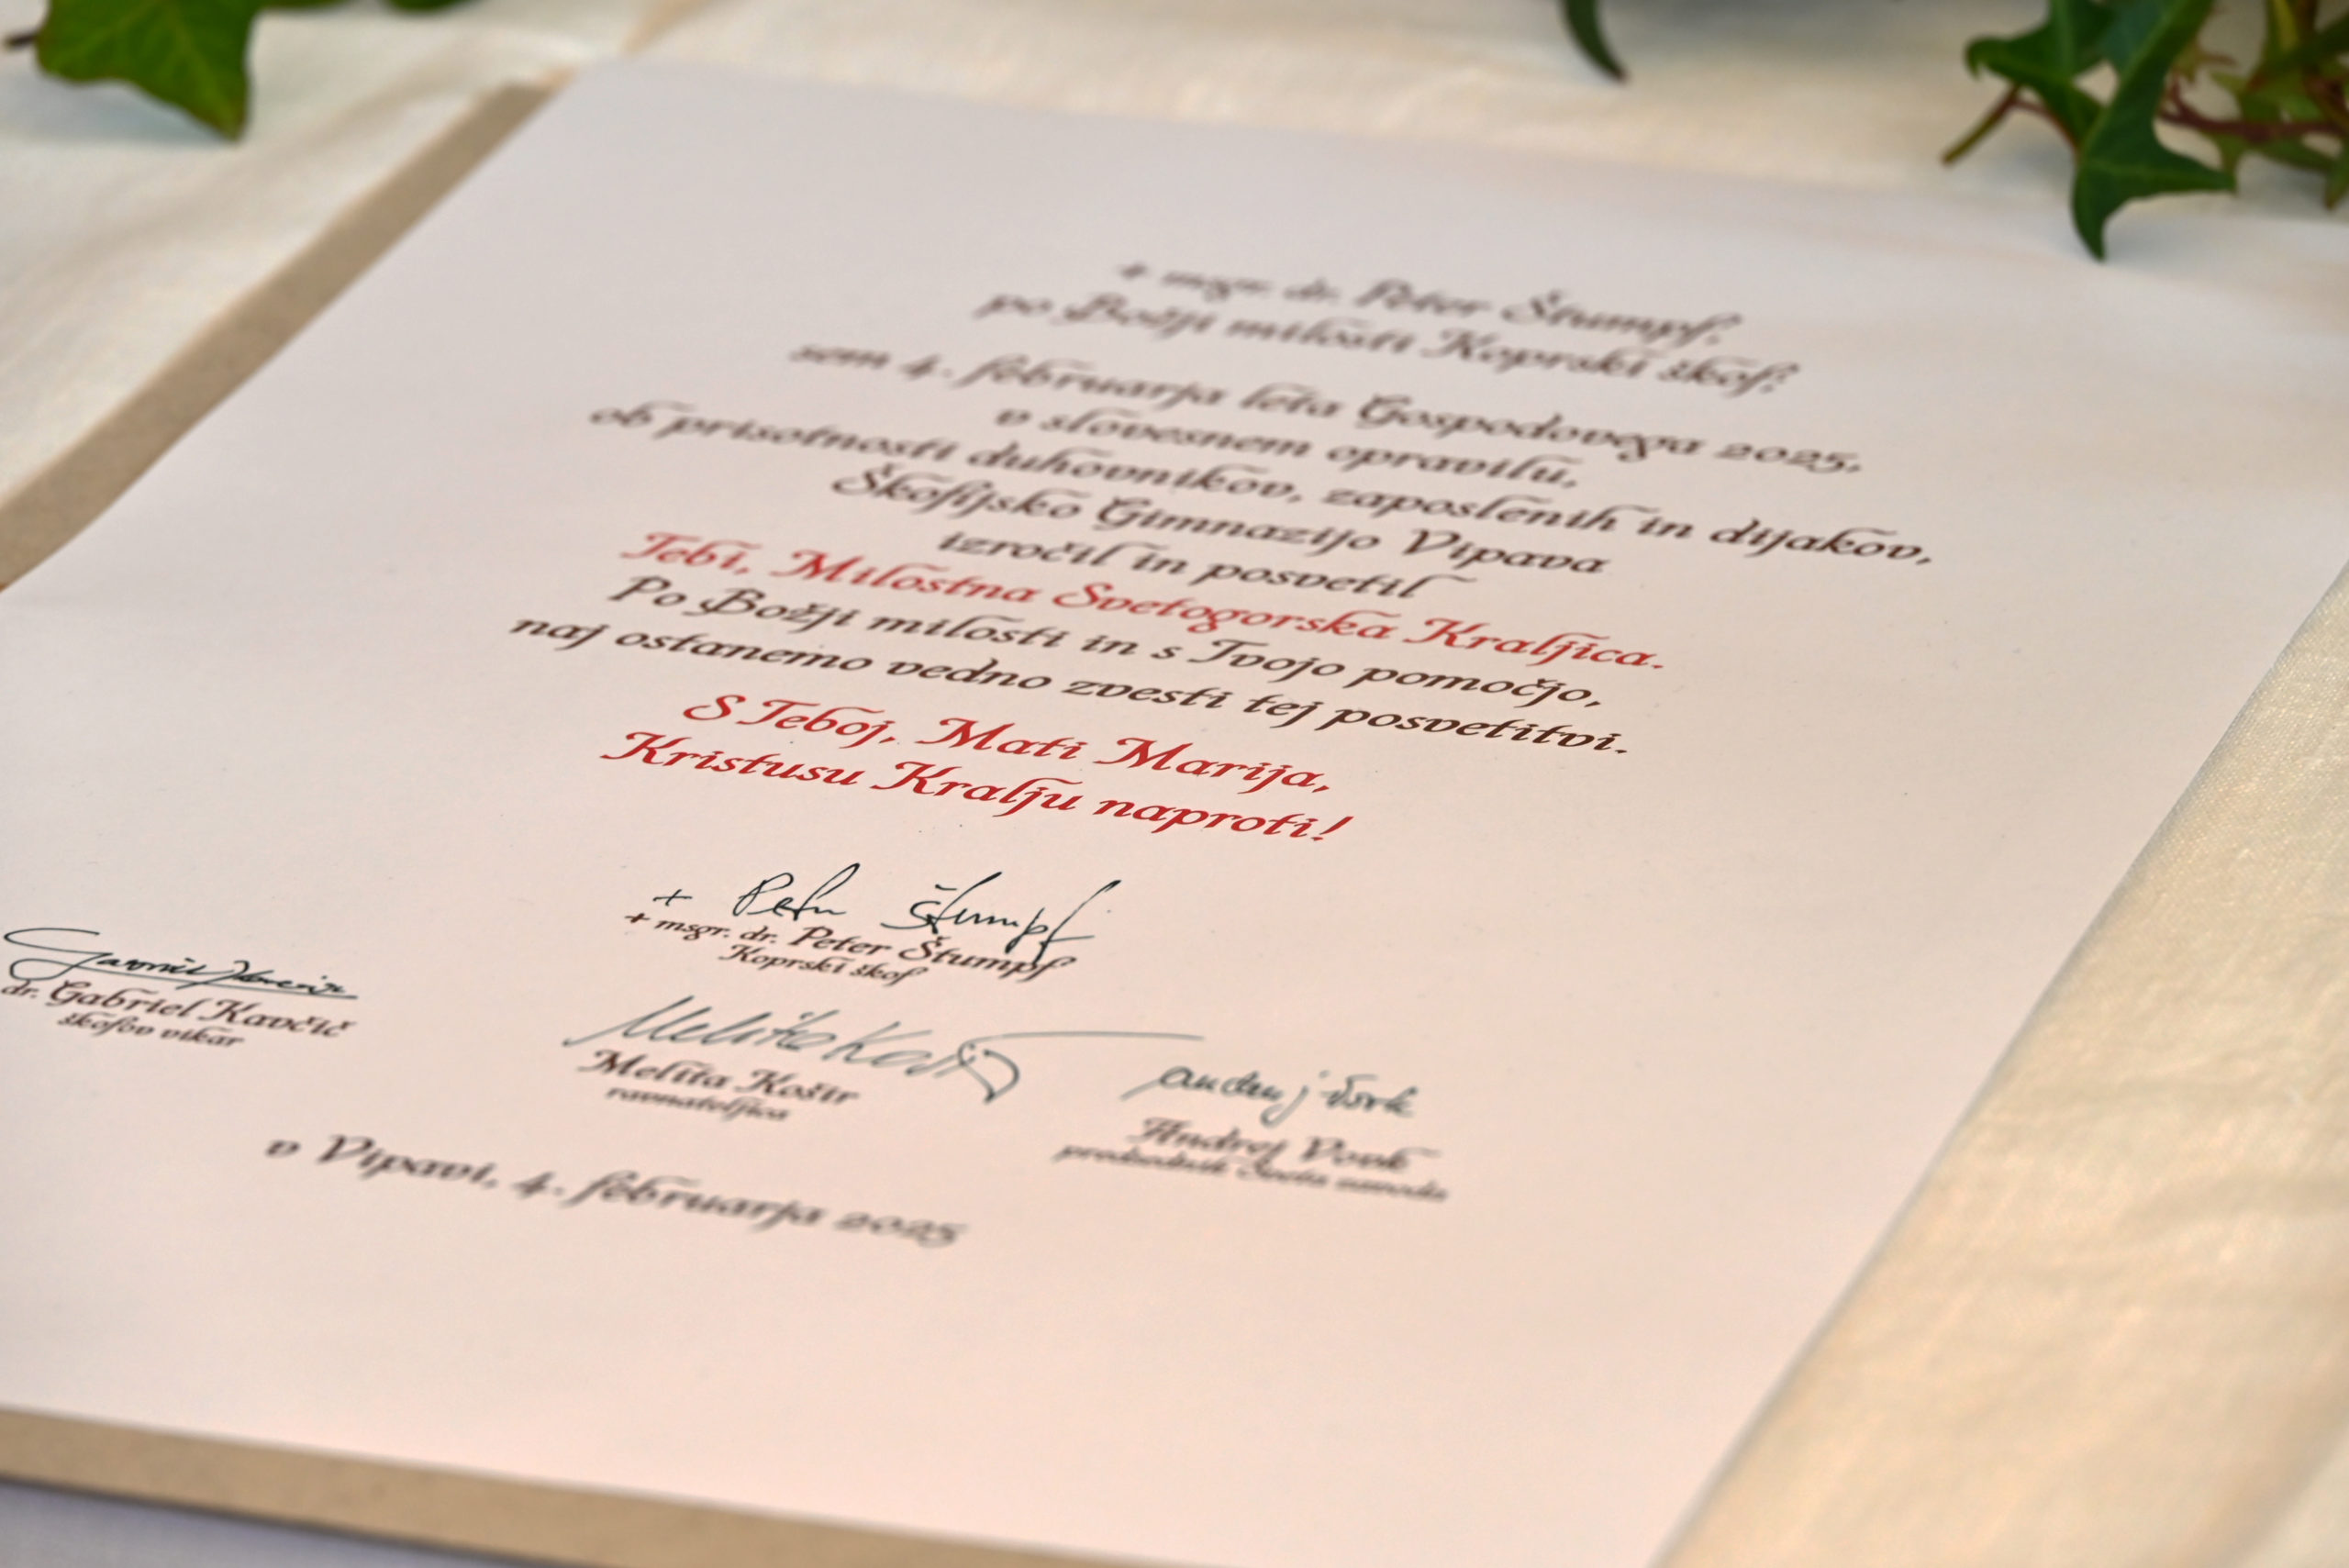 + msgr. dr. Peter Štumpf,
po Božji milosti Koprski škof,
sem 4. februarja leta Gospodovega 2025,
v slovesnem opravilu,
ob prisotnosti duhovnikov, zaposlenih in dijakov,
Škofijsko Gimnazijo Vipava
izročil in posvetil
Tebi, Milostna Svetogorska Kraljica.
Po Božji milosti in s Tvojo pomočjo,
naj ostanemo vedno zvesti tej posvetitvi.
S Teboj, Mati Marija,
Kristusu Kralju naproti!
+ Peter Štumpf
+ msgr. dr. Peter Štumpf
Koprski škof
dr. Gabriel Kavčič
škofov vikar
Melita Košir
Melita Košir
ravnateljica
Andrej Vovk
Andrej Vovk
predsednik Sveta zavoda
v Vipavi, 4. februarja 2025